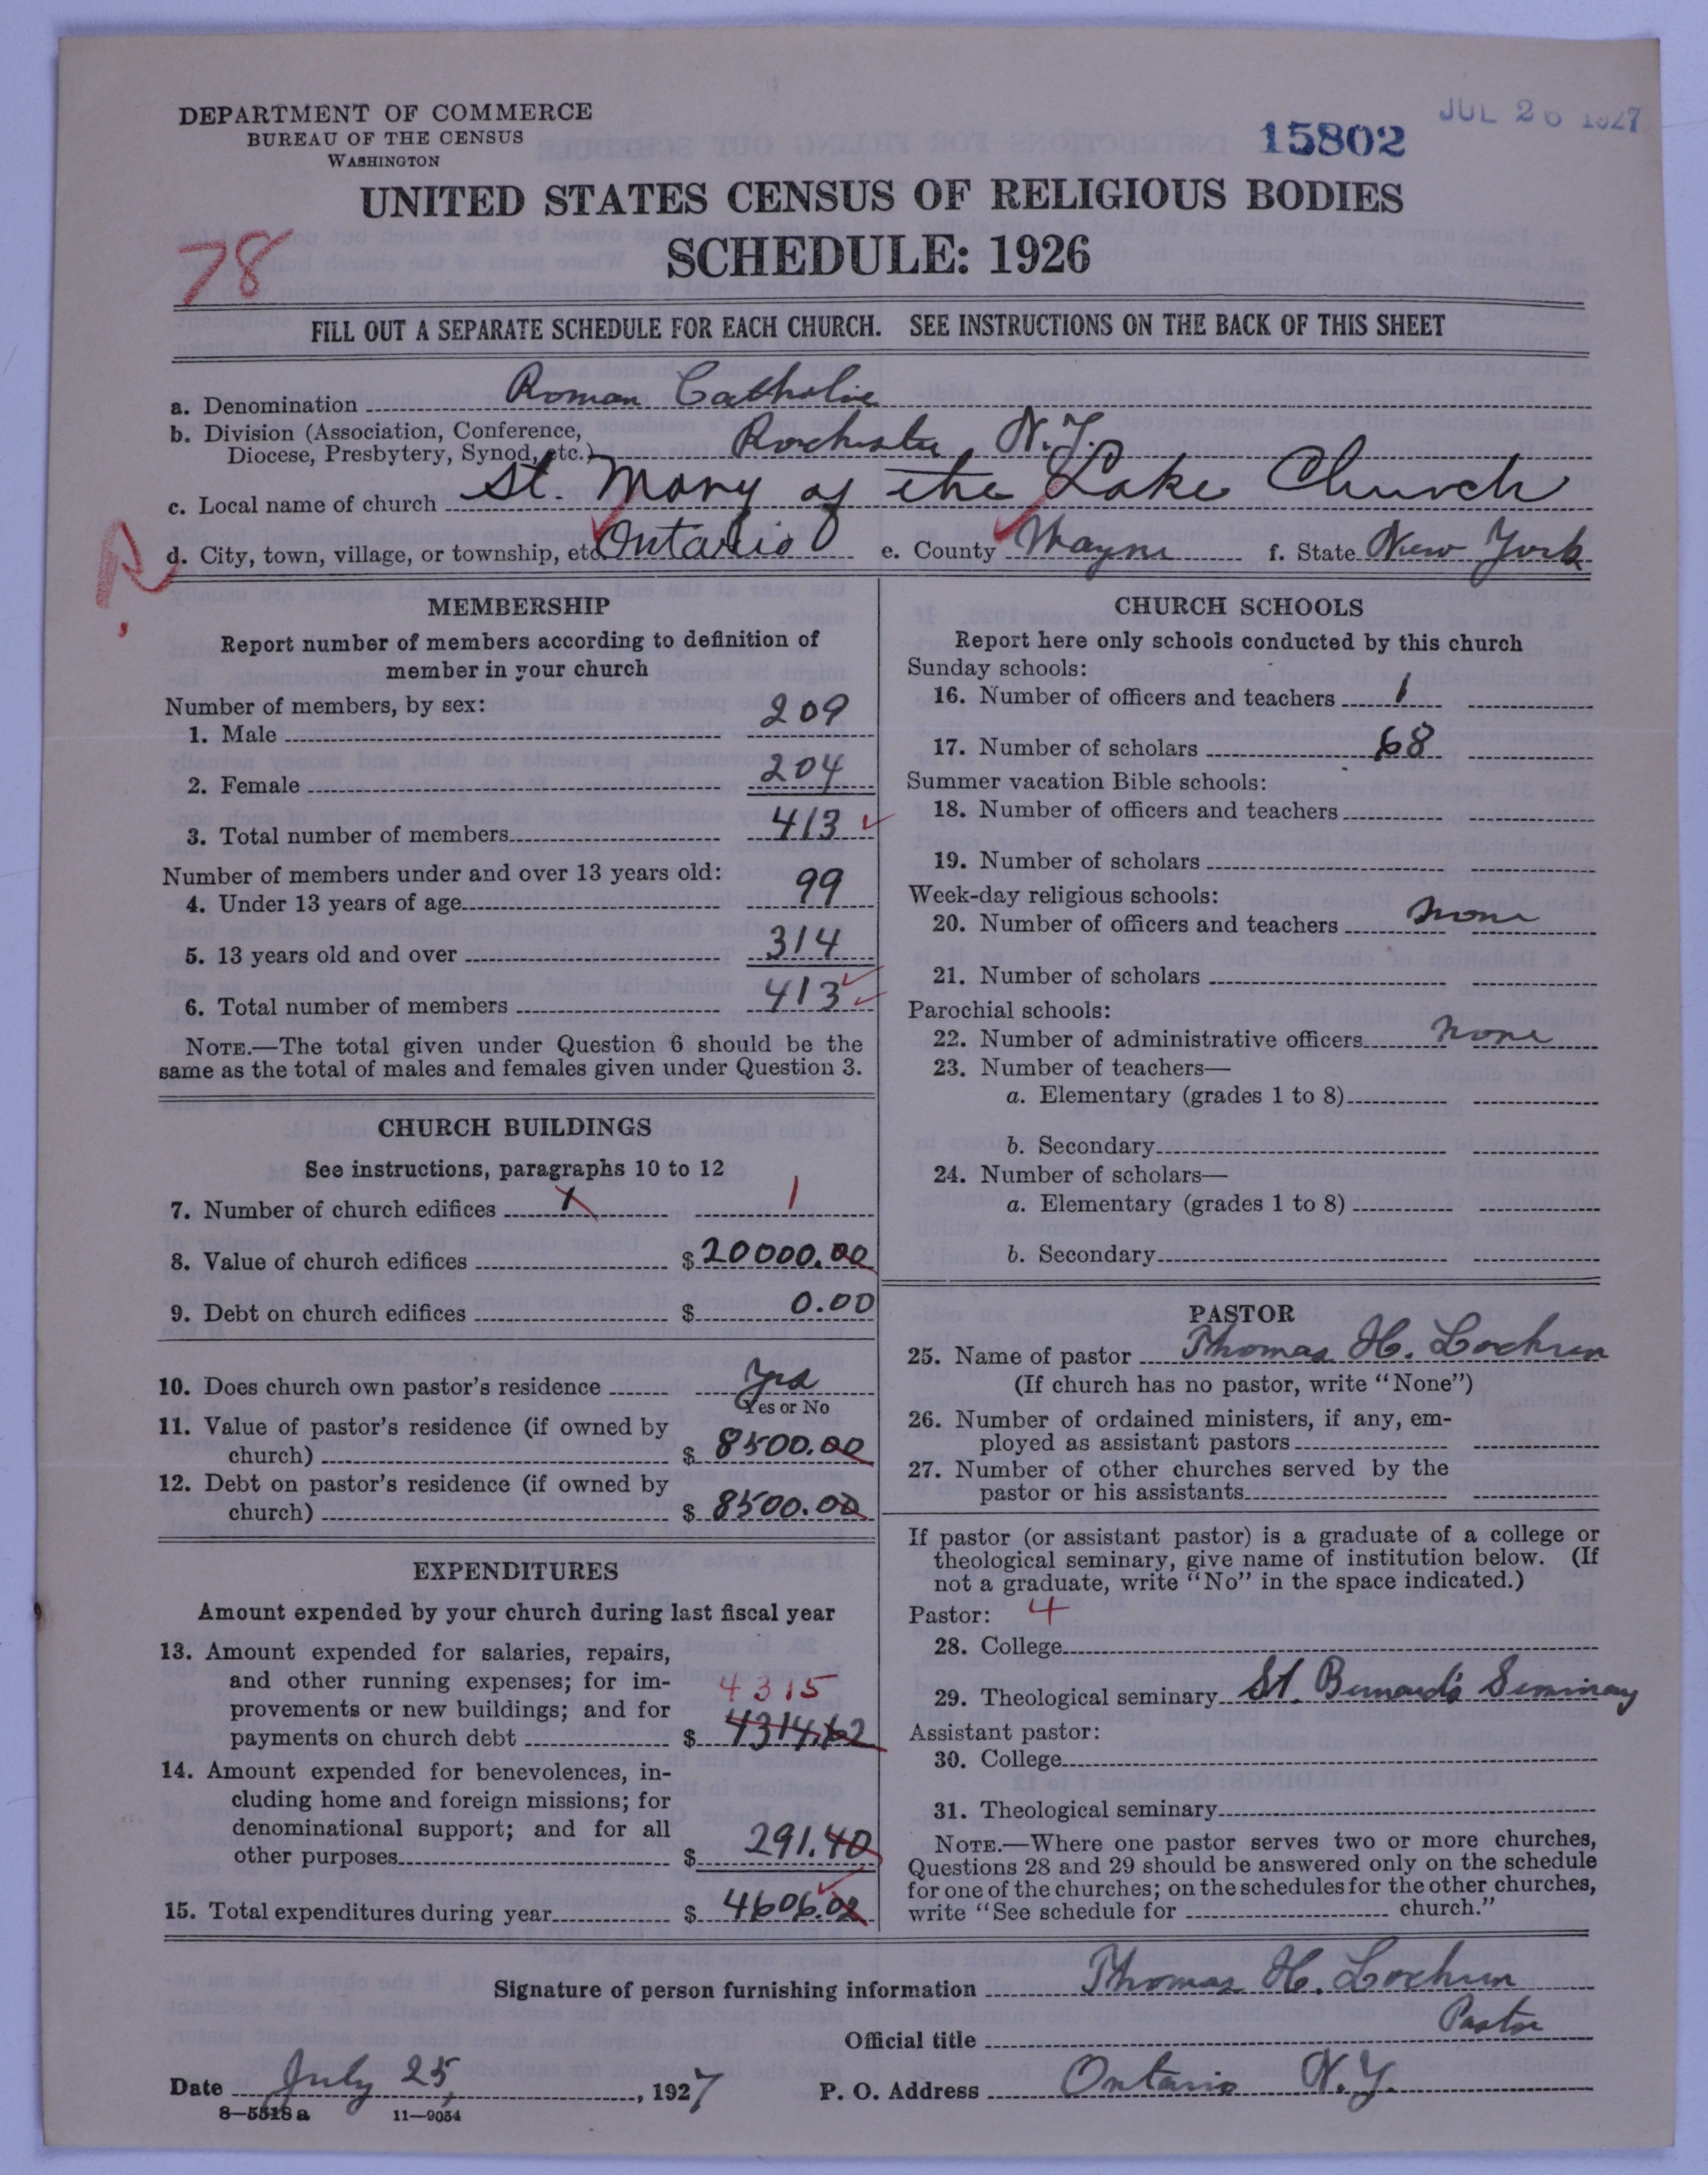 DEPARTMENT OF COMMERCE
BUREAU OF THE CENSUS
WASHINGTON
15802
JUL 26 1927
UNITED STATES CENSUS OF RELIGIOUS BODIES
SCHEDULE: 1926
78
FILL OUT A SEPARATE SCHEDULE FOR EACH CHURCH. SEE INSTRUCTIONS ON THE BACK OF THIS SHEET
a. Denomination Roman Catholic
b. Division (Association, Conference,
Diocese, Presbytery, Synod, etc.) Rochester N.Y.
c. Local name of church St. Mary of the Lake Church
R.
d. City, town, village, or township, etc. Ontario e. County Wayne f. State New York
MEMBERSHIP
Report number of members according to definition of
member in your church
Number of members, by sex:
1. Male 209
2. Female 204
3. Total number of members 413
Number of members under and over 13 years old:
4. Under 13 years of age 99
5. 13 years old and over 314
6. Total number of members 413
NOTE.—The total given under Question 6 should be the
same as the total of males and females given under Question 3.
CHURCH BUILDINGS
See instructions, paragraphs 10 to 12
7. Number of church edifices 1 1
8. Value of church edifices $ 20000.00
9. Debt on church edifices $ 0.00
10. Does church own pastor's residence Yes
Yes or No
11. Value of pastor's residence (if owned by
church) $ 8500.00
12. Debt on pastor's residence (if owned by
church) $ 8500.00
EXPENDITURES
Amount expended by your church during last fiscal year
13. Amount expended for salaries, repairs,
and other running expenses; for im-
provements or new buildings; and for 4315
payments on church debt $ 4314.62
14. Amount expended for benevolences, in-
cluding home and foreign missions; for
denominational support; and for all
other purposes $ 291.40
15. Total expenditures during year $ 4606.02
CHURCH SCHOOLS
Report here only schools conducted by this church
Sunday schools:
16. Number of officers and teachers 1
17. Number of scholars 68
Summer vacation Bible schools:
18. Number of officers and teachers
19. Number of scholars
Week-day religious schools:
20. Number of officers and teachers none
21. Number of scholars
Parochial schools:
22. Number of administrative officers none
23. Number of teachers—
a. Elementary (grades 1 to 8)
b. Secondary
24. Number of scholars—
a. Elementary (grades 1 to 8)
b. Secondary
PASTOR
25. Name of pastor Thomas H. Lochren
(If church has no pastor, write "None")
26. Number of ordained ministers, if any, em-
ployed as assistant pastors
27. Number of other churches served by the
pastor or his assistants
If pastor (or assistant pastor) is a graduate of a college or
theological seminary, give name of institution below. (If
not a graduate, write "No" in the space indicated.)
Pastor: 4
28. College
29. Theological seminary St. Bernard's Seminary
Assistant pastor:
30. College
31. Theological seminary
NOTE.—Where one pastor serves two or more churches,
Questions 28 and 29 should be answered only on the schedule
for one of the churches; on the schedules for the other churches,
write "See schedule for church."
Signature of person furnishing information Thomas H. Lochren
Official title Pastor
Date July 25, 1927 P. O. Address Ontario N.Y.
8—5518 a 11—9054